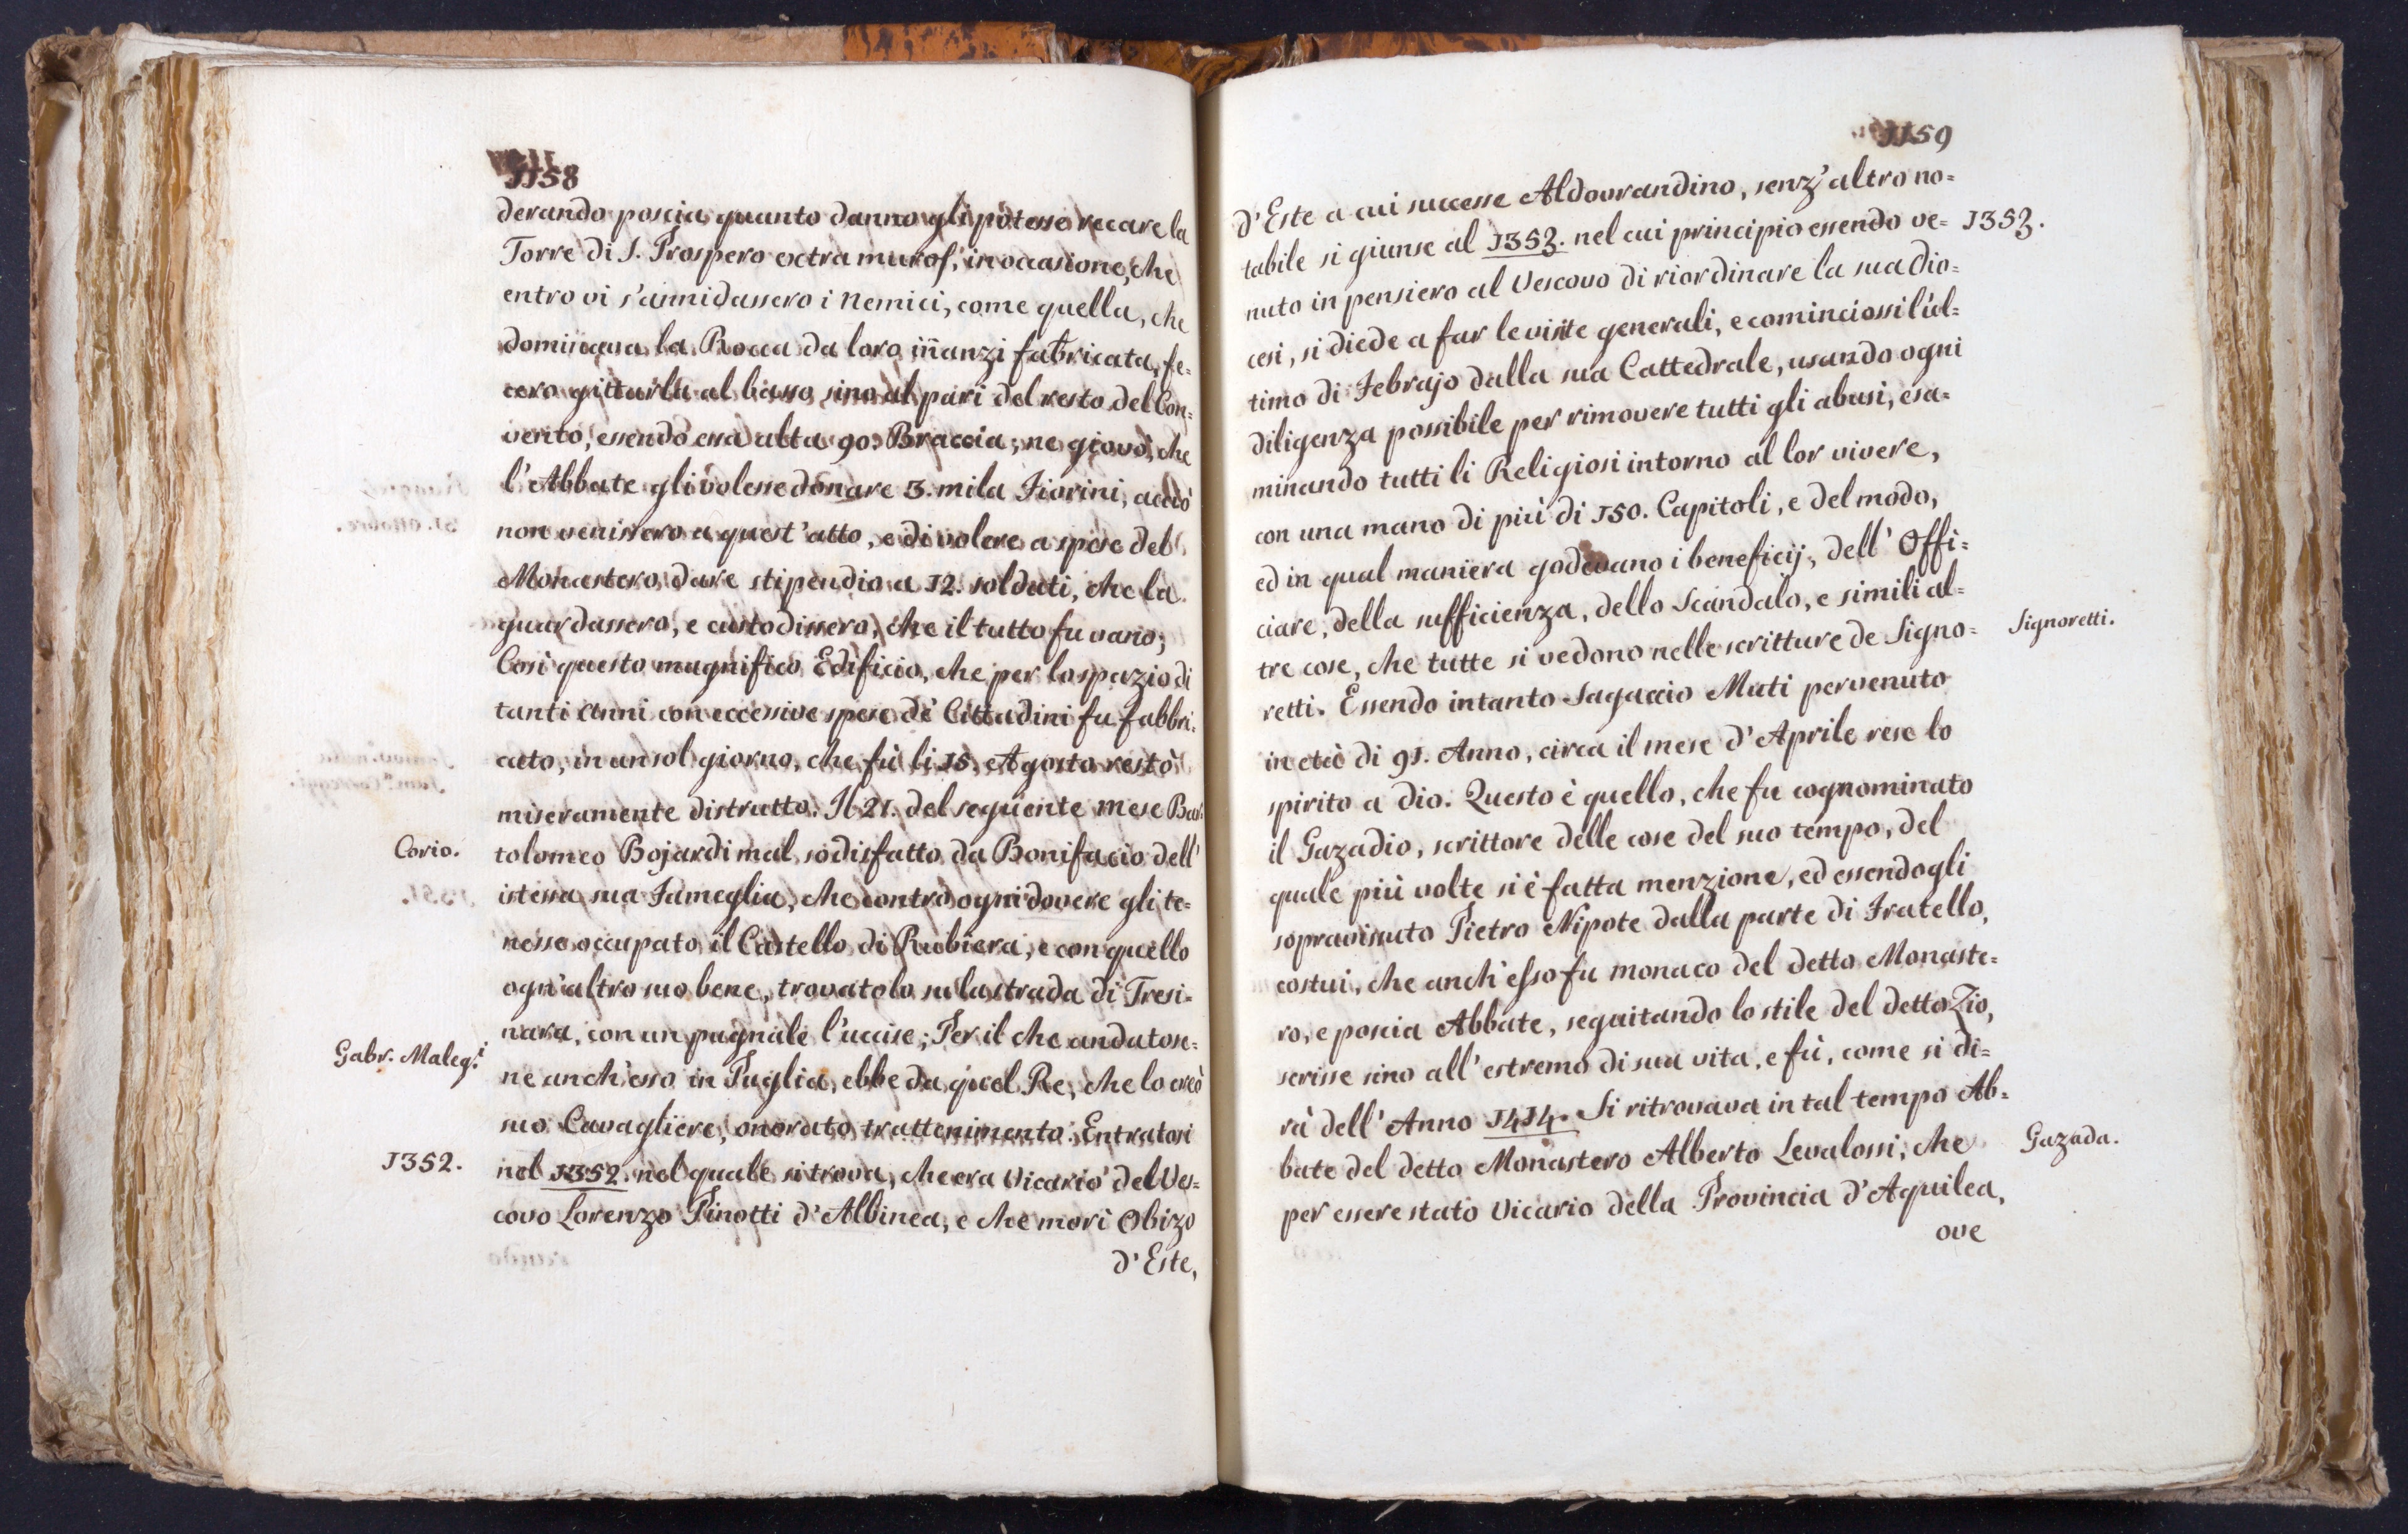 1158
derando poscia quanto danno gli potesse recare la
Torre di S. Prospero extra muros, in occasione, che
entro vi s'annidassero i Nemici, come quella, che
dominava la Rocca da loro iñanzi fabricata, fe=
cero gittarla al basso sino al pari del resto del Con=
vento, essendo essa alta 90. Braccia; ne giovò, che
l'Abbate gli volesse donare 3. mila Fiorini, acciò
non venissero a quest'atto, e di volere a spese del
Monastero dare stipendio a 12. soldati, che la
guardassero, e custodissero, che il tutto fu vano;
Così questo magnifico Edificio, che per lo spazio di
tanti Anni con eccessive spese de' Cittadini fu fabbri=
cato, in un sol giorno, che fù li 15. Agosto restò
miseramente distrutto. Il 21. del seguente mese Bar=
Corio. tolomeo Bojardi mal sodisfatto da Bonifacio dell'
istessa sua Fameglia, che contro ogni dovere gli te=
nesse occupato il Castello di Rubiera, e con quello
ogn'altro suo bene, trovatolo su la strada di Tresi=
nara, con un pugnale l'uccise; Per il che andatose=
Gabr. Maleg.i ne anch'esso in Puglia, ebbe da quel Re, che lo creò
suo Cavagliere, onorato trattenimento. Entratosi
1352. nel 1352. nel quale si trova, che era Vicario del Ves=
covo Lorenzo Pinotti d'Albinea, e che morì Obizo
d'Este,
1159
d'Este a cui successe Aldovrandino, senz'altro no=
tabile si giunse al 1353. nel cui principio essendo ve= 1353.
nuto in pensiero al Vescovo di riordinare la sua dio=
cesi, si diede a far le visite generali, e cominciossi l'ul=
timo di Febrajo dalla sua Cattedrale, usando ogni
diligenza possibile per rimovere tutti gli abusi, esa=
minando tutti li Religiosi intorno al lor vivere,
con una mano di più di 150. Capitoli, e del modo,
ed in qual maniera godevano i beneficij, dell'Offi=
ciare, della sufficienza, dello Scandalo, e simili al=
tre cose, che tutte si vedono nelle scritture de Signo= Signoretti.
retti. Essendo intanto Sagaccio Muti pervenuto
in età di 91. Anno, circa il mese d'Aprile rese lo
spirito a dio. Questo è quello, che fu cognominato
il Gazadio, scrittore delle cose del suo tempo, del
quale più volte si è fatta menzione, ed essendogli
sopravissuto Pietro Nipote dalla parte di Fratello,
costui, che anch'esso fu monaco del detto Monaste=
ro, e poscia Abbate, seguitando lo stile del detto Zio,
scrisse sino all'estremo di sua vita, e fù, come si di=
rà dell'Anno 1414. Si ritrovava in tal tempo Ab=
bate del detto Monastero Alberto Levalossi, che Gazada.
per essere stato Vicario della Provincia d'Aquilea,
ove